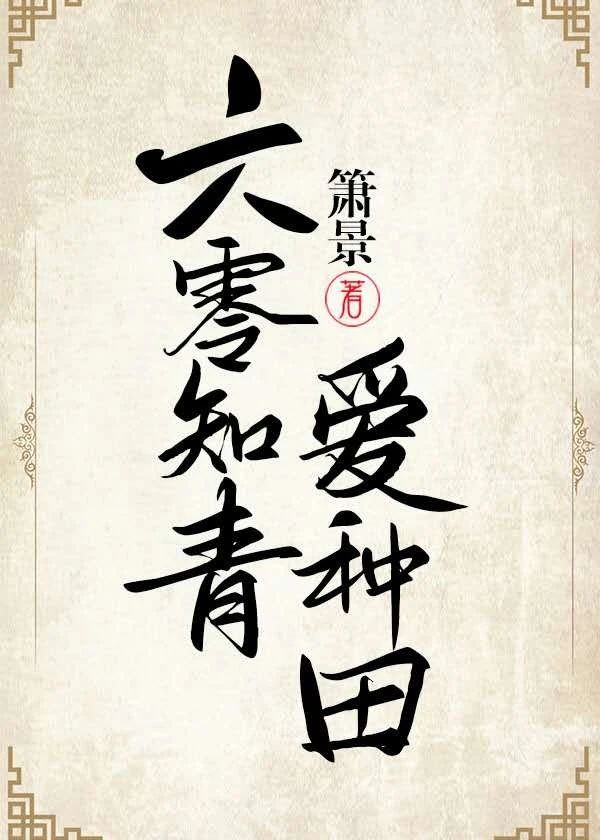 六零知青
爱种田
箫景
著